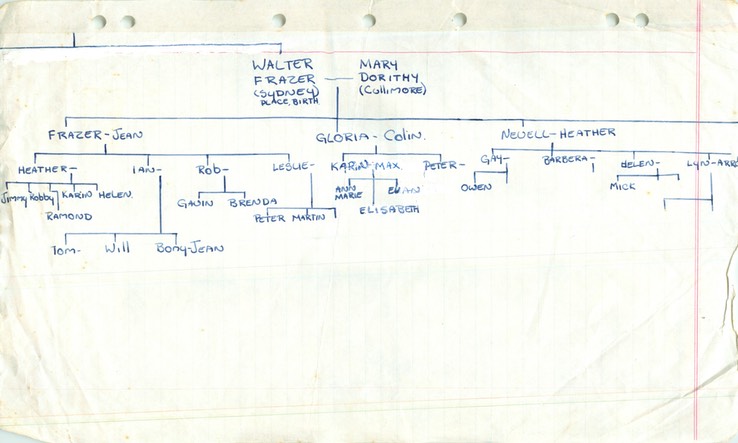 WALTER
FRAZER
(SYDNEY)
PLACE, BIRTH
MARY
DORITHY
(Cullimore)
FRAZER-JEAN
GLORIA-Colin.
NEVELL-HEATHER
HEATHER-
IAN-
Rob-
LESLIE-
KARIN-MAX
PETER-
GAY-
BARBERA-
HELEN-
LYN-ARR
Jimmy
Robby
KARIN
HELEN.
RAMOND
GAVIN
BRENDA
PETER
MARTIN
ANN
MARIE
EVAN
ELISABETH
OWEN
MICK
Tom-
Will
Bony-JEAN